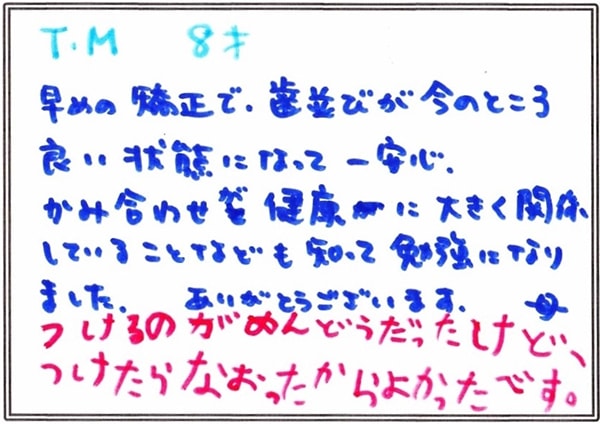 T.M 8才
早めの矯正で、歯並びが今のところ
良い状態になって一安心。
かみ合わせが健康に大きく関係
していることなども知って勉強になり
ました。 ありがとうございます。
つけるのがめんどうだったけど、
つけたらなおったからよかったです。